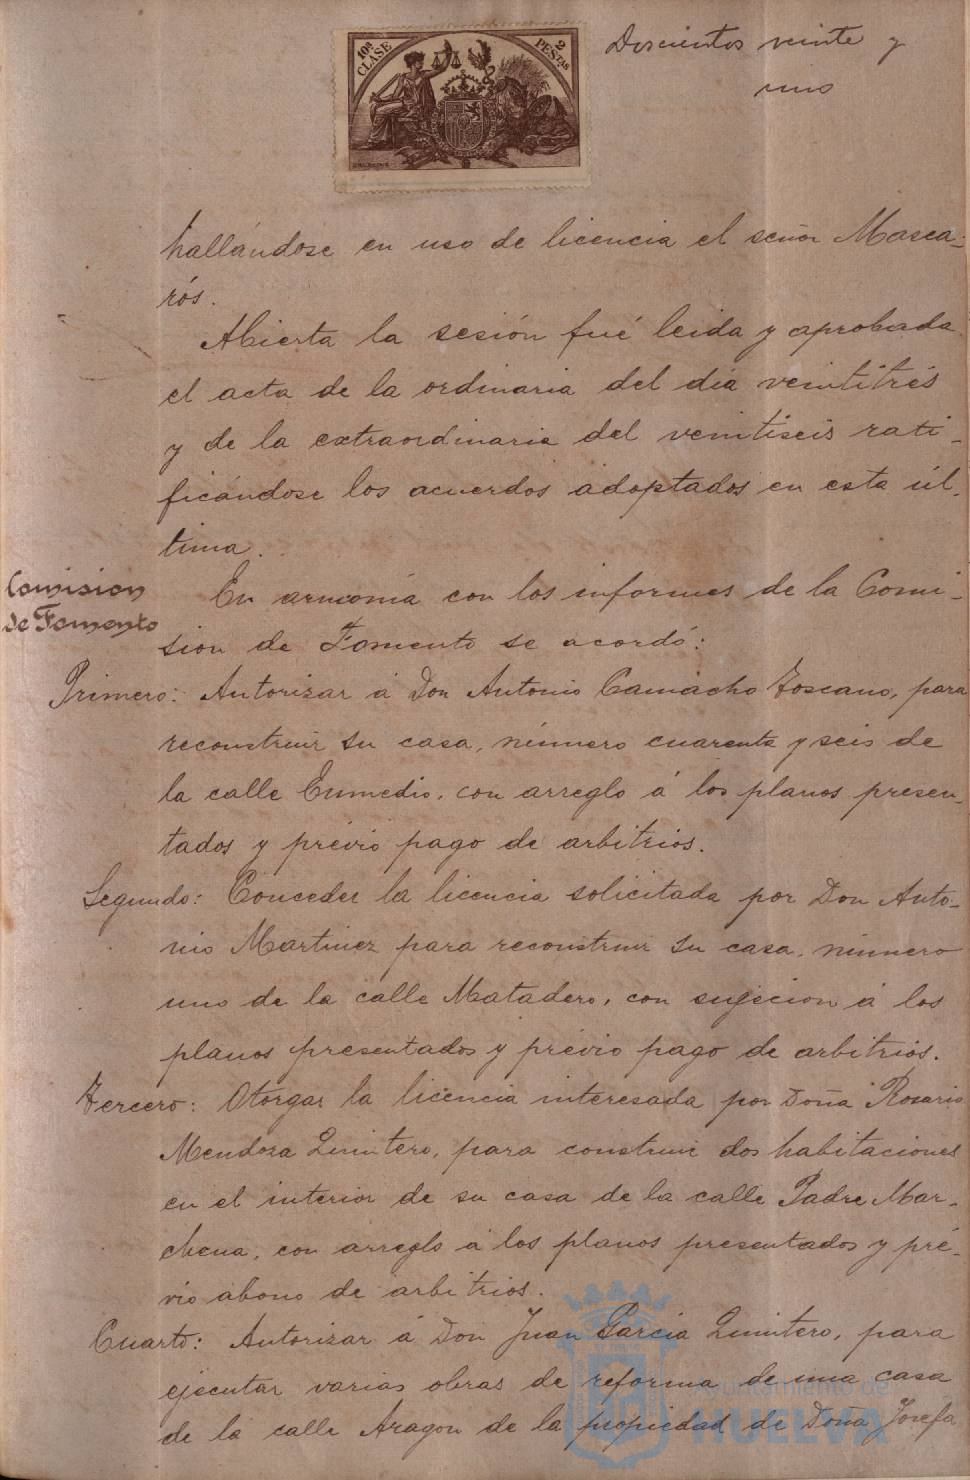 10ª CLASE
2 PESTAS
Doscientos veinte y
uno
hallándose en uso de licencia el señor Masca-
rós.
Abierta la sesión fué leida y aprobada
el acta de la ordinaria del dia veintitrés
y de la extraordinaria del veintiseis rati-
ficándose los acuerdos adoptados en esta úl-
tima.
Comision
de Fomento
En armonía con los informes de la Comi-
sion de Fomento se acordó:
Primero: Autorizar á Don Antonio Camacho Toscano, para
reconstruir su casa, número cuarenta y seis de
la calle Enmedio, con arreglo á los planos presen-
tados y prévio pago de arbitrios.
Segundo: Conceder la licencia solicitada por Don Anto-
nio Martinez para reconstruir su casa, número
uno de la calle Matadero, con sujecion á los
planos presentados y prévio pago de arbitrios.
Tercero: Otorgar la licencia interesada por Doña Rosario
Mendoza Quintero, para construir dos habitaciones
en el interior de su casa de la calle Padre Mar-
chena, con arreglo á los planos presentados y pré-
vio abono de arbitrios.
Cuarto: Autorizar á Don Juan Garcia Quintero, para
ejecutar varias obras de reforma de una casa
de la calle Aragon de la propiedad de Doña Josefa
Ayuntamiento de
HUELVA